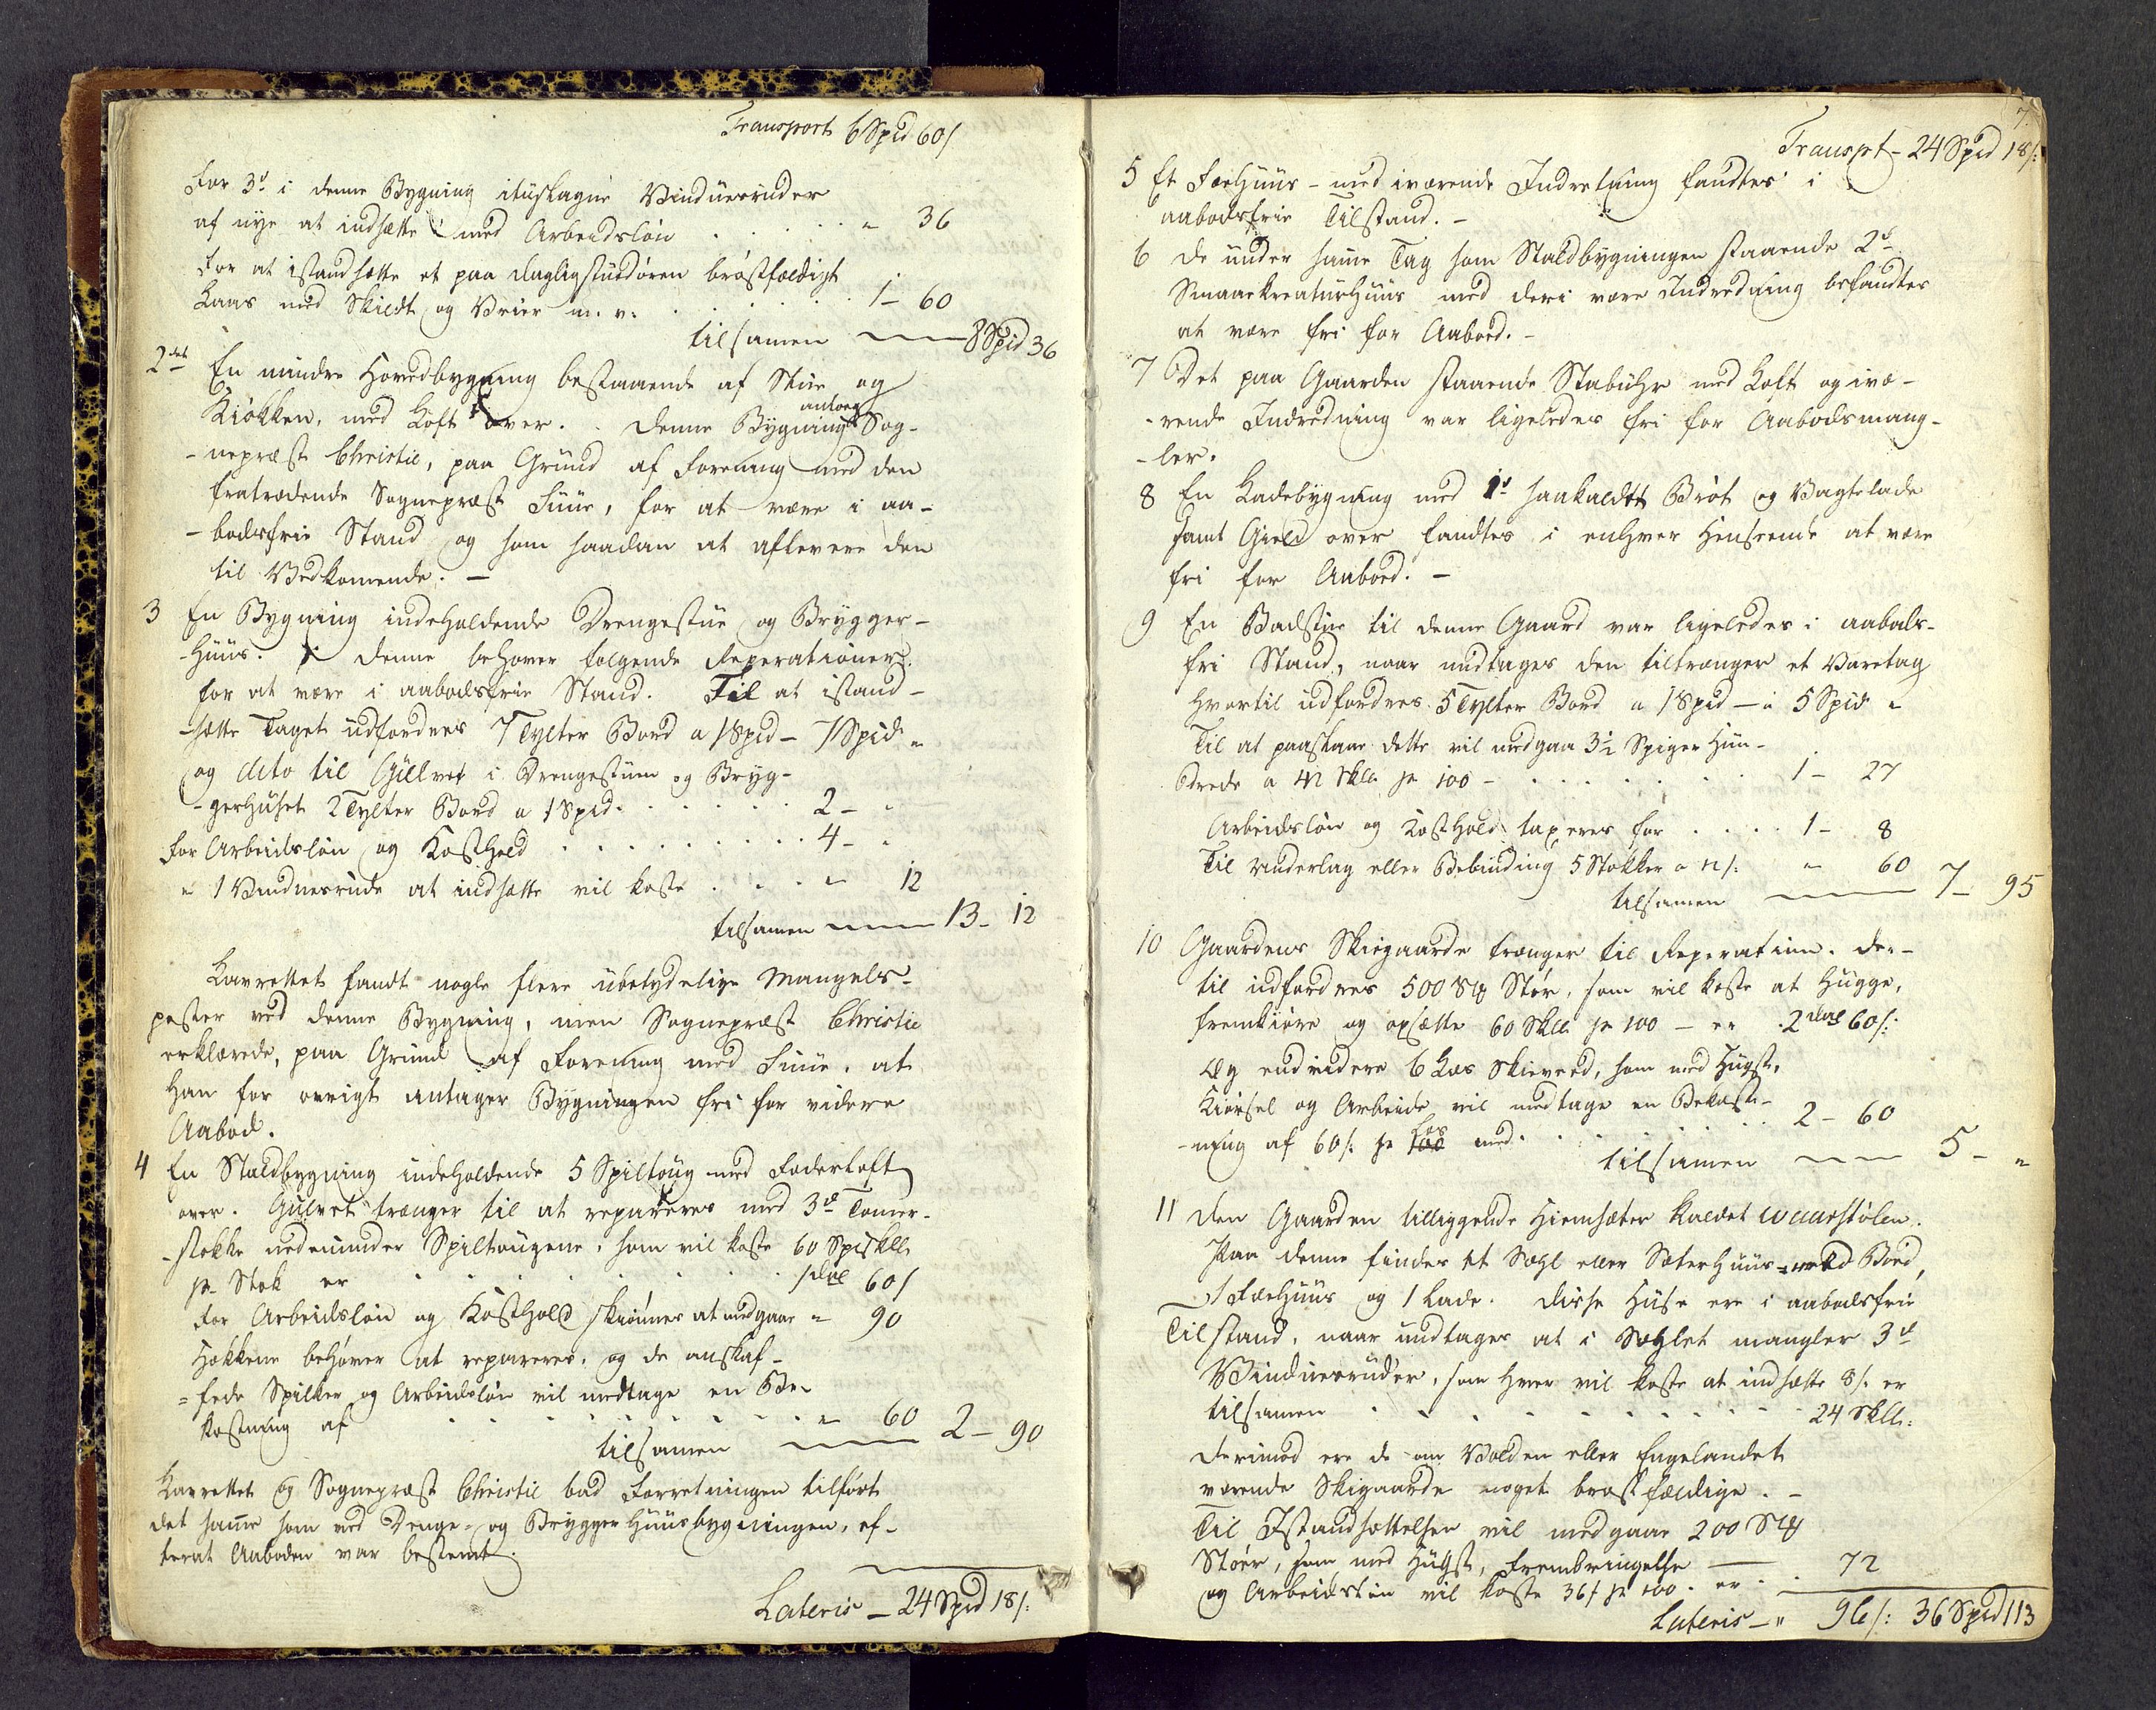 Transport 6 Spd 60/
For 3de i denne Bygning ituslagne Vinduesruder
af nye at indsætte med Arbeidsløn . . . . . " 36
For at istandsætte et paa Dagligstuedøren brøstfældigt
Laas med Skildt og Vrier m. v. . . . . 1 - 60
tilsamen —— 8 Spd 36
2det En mindre Hovedbygning bestaaende af Stue og
Kiøkken, med Loft over. Denne Bygning antoeg Sog-
-nepræst Christie, paa Grund af Forening med den
fratrædende Sognepræst Siiue, for at være i aa-
-bodsfrie Stand og som saadan at aflevere den
til Vedkomende. -
3 En Bygning indeholdende Drengestue og Brygger-
-Huus. Denne behøver følgende Reperationer
for at være i aabodsfrie Stand. Til at istand-
-sætte Taget udfordres 7 Tylter Bord a 1 Spd - 7 Spd "
og dito til Gullvet i Drengestuen og Bryg-
-gerhuset 2 Tylter Bord a 1 Spd . . . . . . 2 - "
For Arbeidsløn og Kosthold . . . . . . . . 4 - "
" 1 Vinduesrude at indsætte vil koste . . . " 12
tilsamen —— 13 - 12
Lavrettet fandt nogle flere ubetydelige Mangels-
poster ved denne Bygning, men Sognepræst Christie
erklærede, paa Grund af Forening med Siiue, at
han for øvrigt antager Bygningen fri for videre
Aabod.
4 En Staldbygning indeholdende 5 Spiltoug med Foderloft
over. Gulvet trænger til at repareres med 3de Tømer-
-stokke nedenunder Spiltougene, som vil koste 60 Spskll
pr Stok er . . . . . . . . . 1 dal 60/
For Arbeidsløn og Kosthold skiønnes at medgaae " 90
Hækkene behøver at repareres, og de anskaf-
-fede Spilker og Arbeidsløn vil medtage en Be-
kostning af . . . . . . . . . " 60
tilsamen —— 2 - 90
Lavrettet og Sognepræst Christie bad Forretningen tilført
det samme som ved Drenge- og Bryggerhuusbygningen, ef-
terat Aaboden var bestemt.
Lateris - 24 Spd 18/:
7.
Transpt - 24 Spd 18/:
5 Et Fæehuus - med iværende Indretning fandtes i
aabodsfrie Tilstand. -
6 De under samme Tag som Staldbygningen staaende 2de
Smaaekreaturhuus med deri være Indredning befandtes
at være fri for Aabod. -
7 Det paa Gaarden staaende Stabuhr med Loft og ivæ-
-rende Indredning var ligeledes fri for Aabodsmang-
-ler.
8 En Ladebygning med 1d saakaldtt Brøt og Vagtelade
samt Gield over fandtes i enhver Henseende at være
fri for Aabod. -
9 En Badstue til denne Gaard var ligeledes i aabods-
fri Stand, naar undtages den tiltrænger et Varetag
hvortil udfordres 5 Tylter Bord a 1 Spd - er 5 Spd "
Til at paaslaae dette vil medgaa 3½ Spiger Hun-
drede a 42 Skll pr 100 - . . . . . . . . 1 - 27
Arbeidsløn og Kosthold taxeres for . . . . 1 - 8
Til Underlag eller Bebinding 5 Stokker a 12/: " 60
tilsamen —— 7 - 95
10 Gaardens Skiegaarde trænger til Reperation. Der-
til udfordres 500 Stk Stør, som vil koste at hugge,
fremkiøre og opsætte 60 Skll pr 100 - er 2 dal 60/:
Og endvidere 6 Læs Skieveed, som med Hugst,
Kiørsel og Arbeide vil medtage en Bekost-
-ning af 60/: pr 100 Læs med . . . . . . 2 - 60
tilsamen —— 5 - "
11 Den Gaarden tilliggende Hiemsæter kaldet Waarstølen.
Paa denne findes et Sæhl eller Sæterhuus med Bord,
1 Fæehuus og 1 Lade. Disse Huse ere i aabodsfrie
Tilstand, naar undtages at i Sæhlet mangler 3de
Vinduesruder, som hver vil koste at indsætte 8/: er
tilsamen . . . . . . . . . . 24 Skll:
Derimod ere de om Volden eller Engelandet
værende Skigaarde noget brøstfældige. -
Til Istandsættelsen vil medgaae 200 Stk
Støer, som med Hugst, Frembringelse ——
og Arbeidsløn vil koste 36/ pr 100. er . . 72
Lateris - " 96/: 36 Spd 113